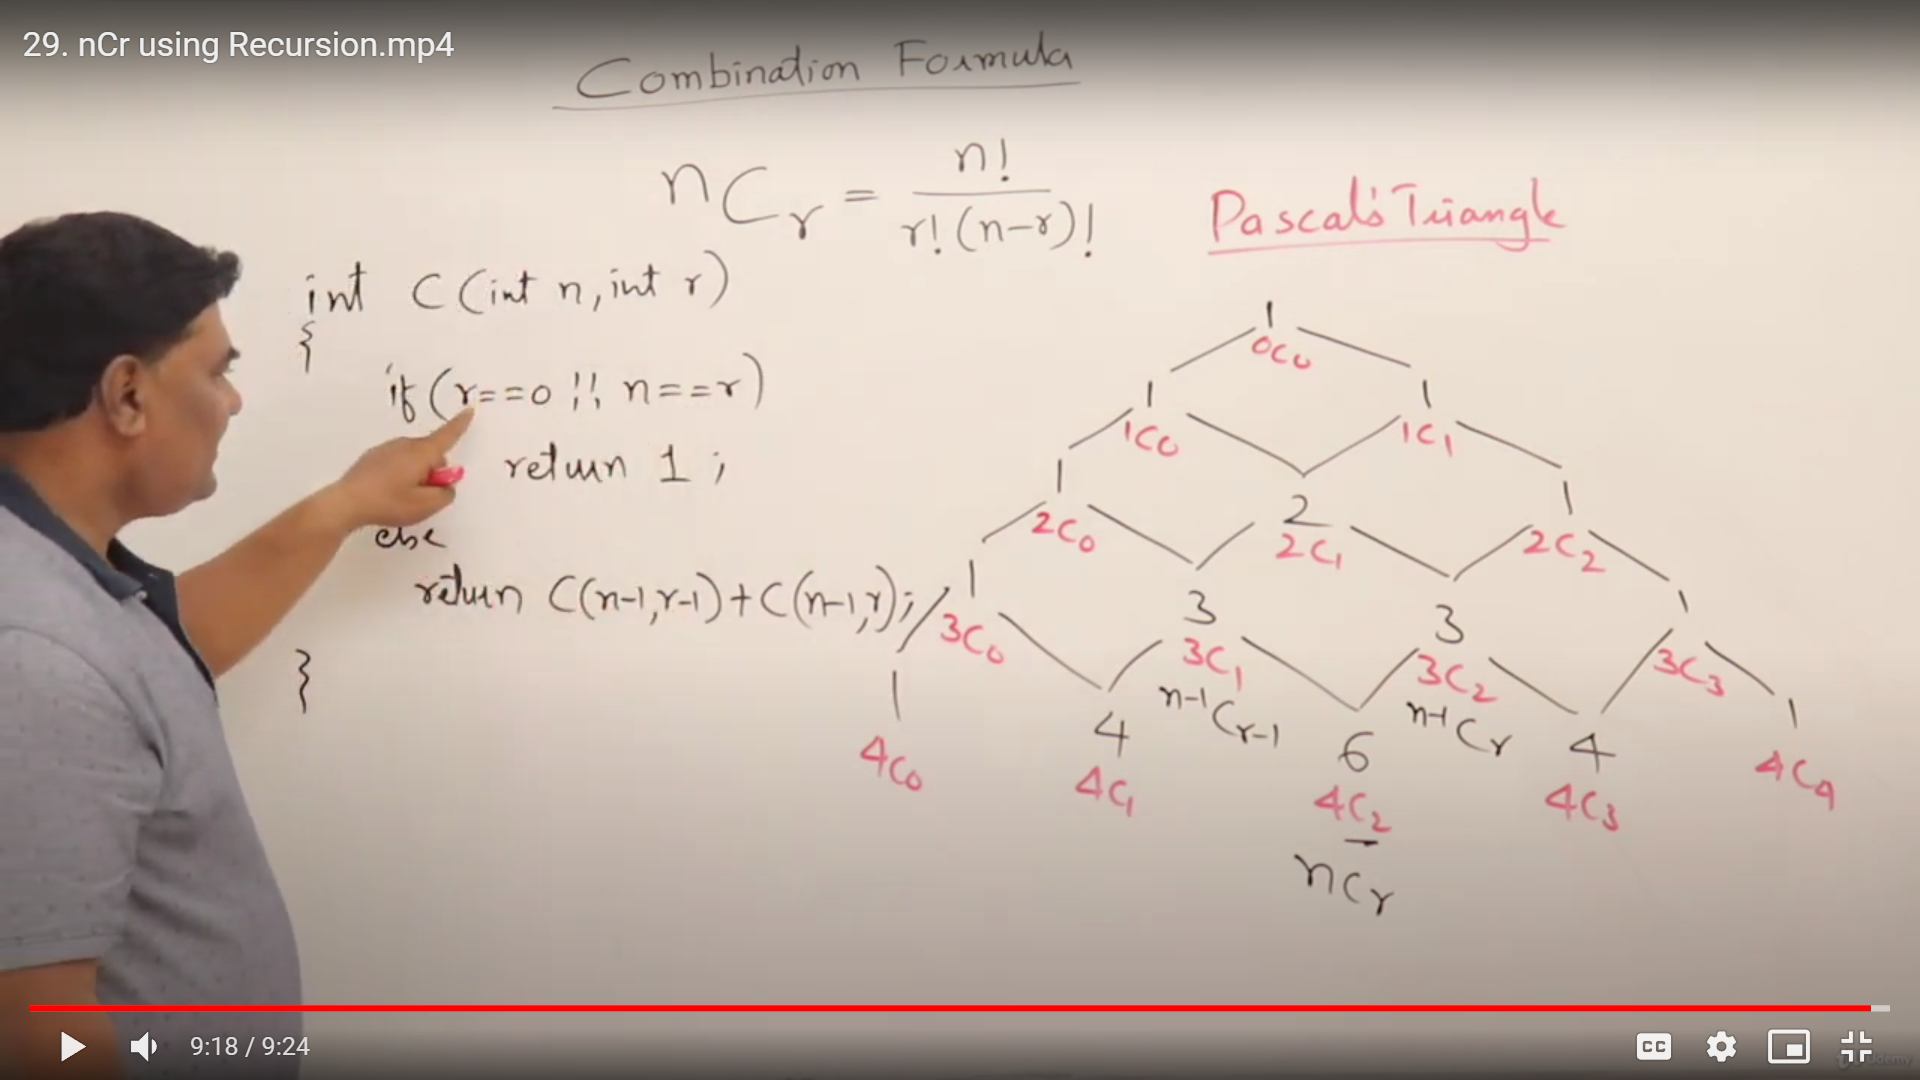 29. nCr using Recursion.mp4
Combination Formula
nCr = n! / r!(n-r)!
Pascal's Triangle
int C(int n, int r)
{
if(r==0 || n==r)
return 1;
else
return C(n-1,r-1)+C(n-1,r);
}
1
0C0
1 1
1C0 1C1
1 2 1
2C0 2C1 2C2
1 3 3 1
3C0 3C1 3C2 3C3
n-1Cr-1 n-1Cr
1 4 6 4 1
4C0 4C1 4C2 4C3 4C4
nCr
9:18 / 9:24
CC
Udemy